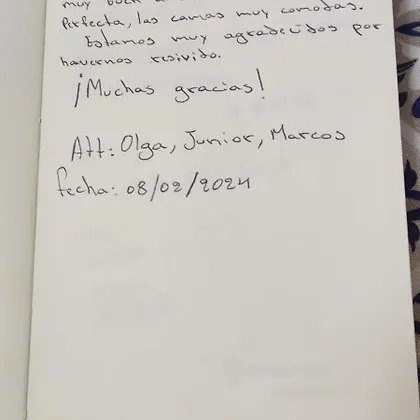 muy buen
Perfecta, las camas muy comodas.
Estamos muy agradecidos por
havernos resivido.
¡Muchas gracias!
Att: Olga, Junior, Marcos
fecha: 08/02/2024